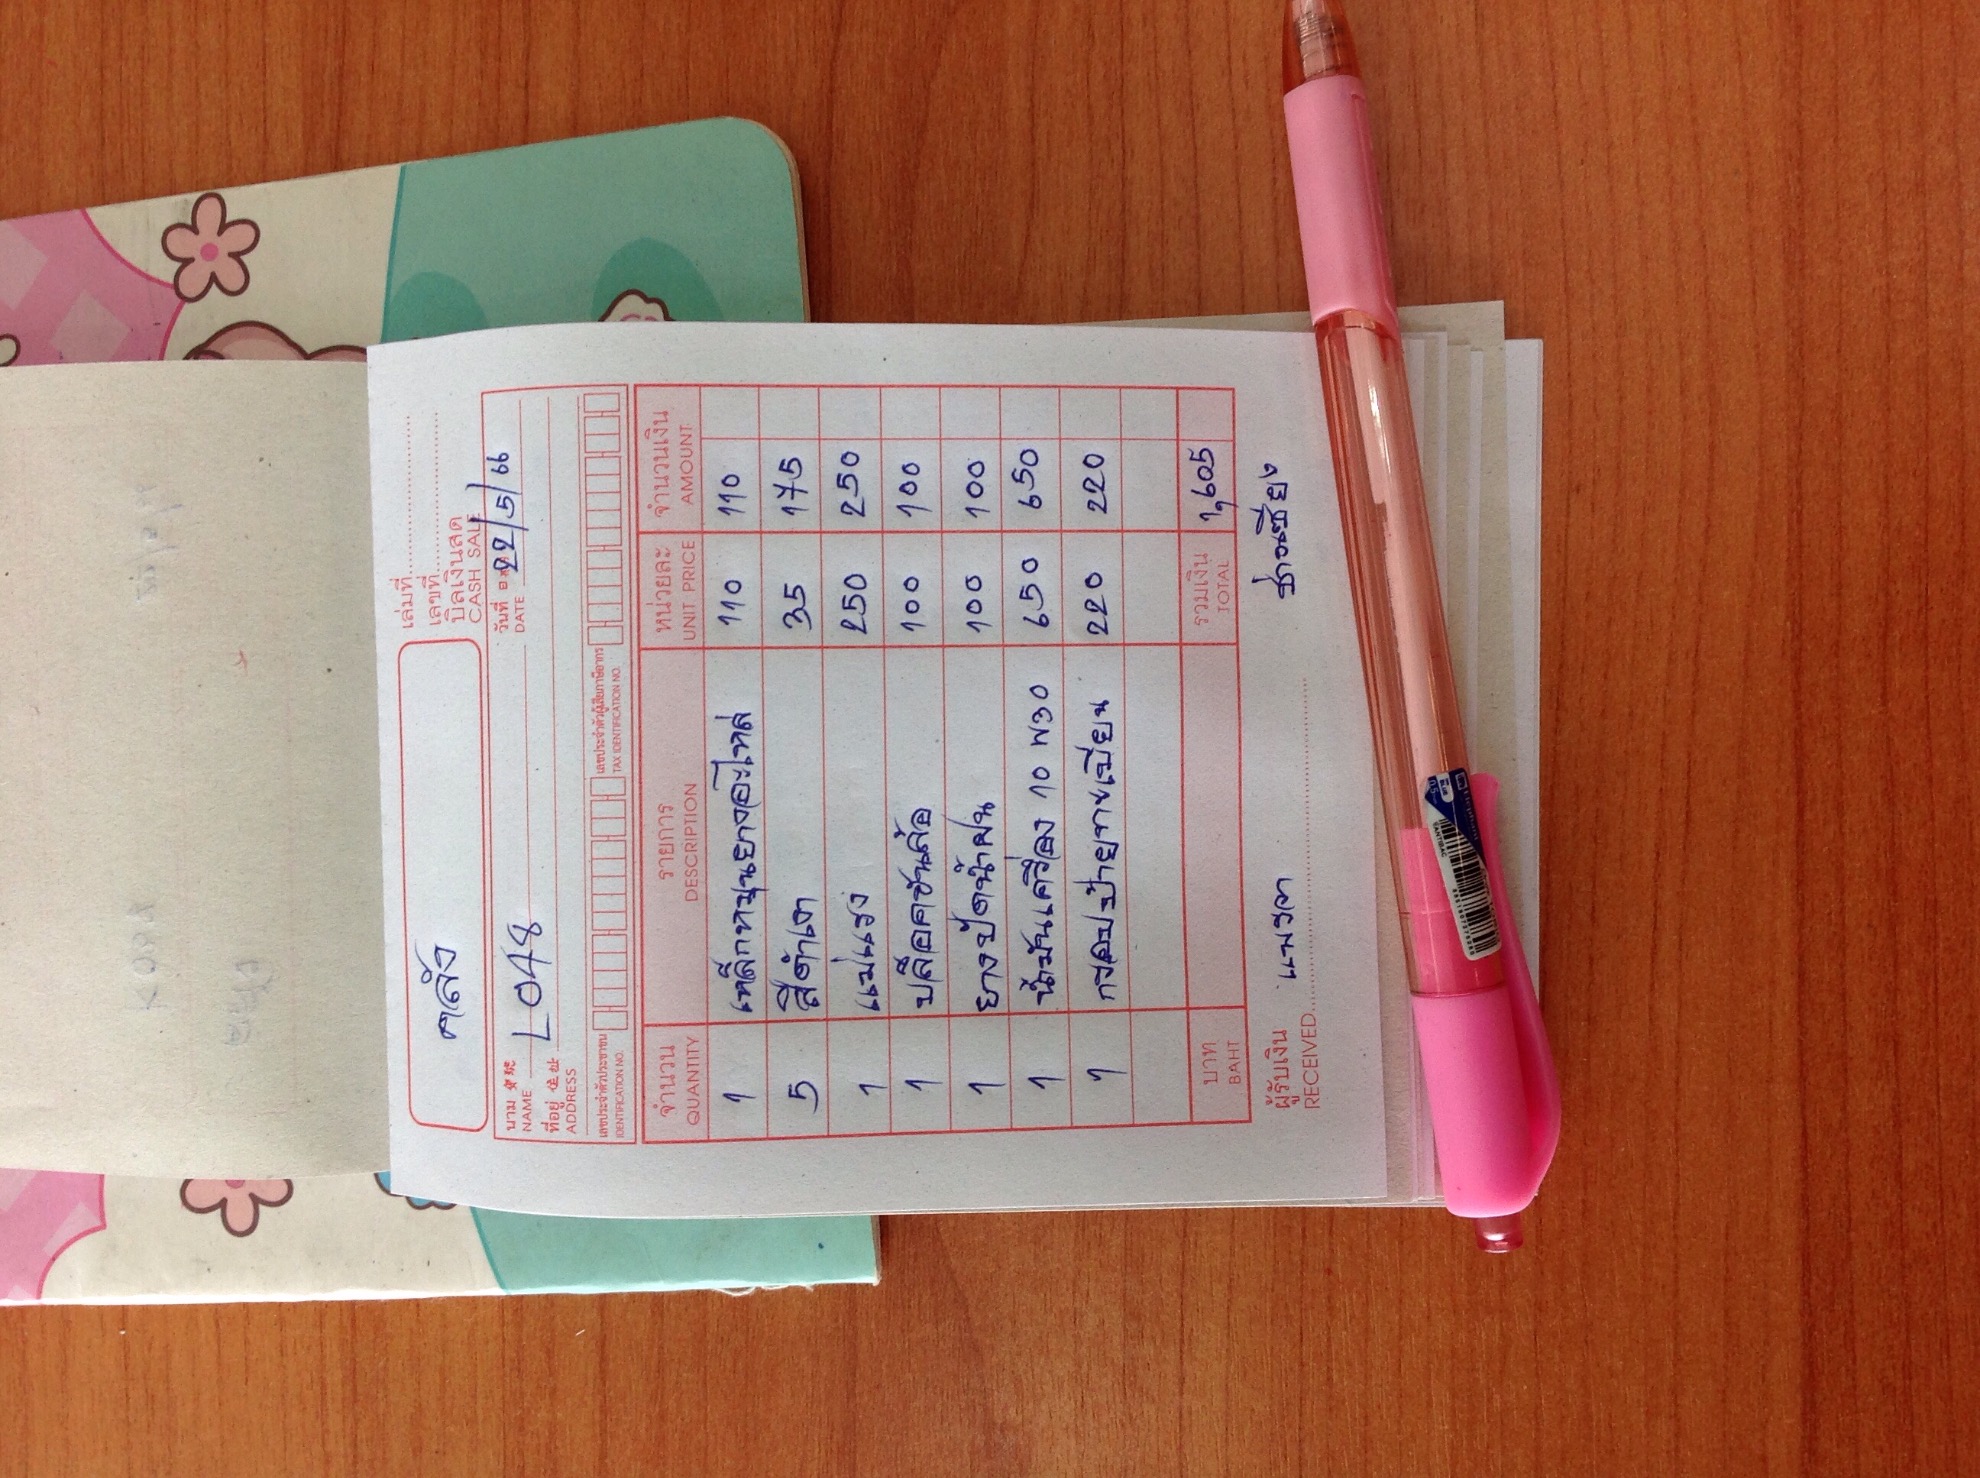 คลัง
เล่มที่
เลขที่
บิลเงินสด
CASH SALE
นาม
NAME L048
วันที่ 22/5/66
DATE
ที่อยู่ 住址
ADDRESS
เลขประจำตัวประชาชน เลขประจำตัวผู้เสียภาษีอากร
IDENTIFICATION NO. TAX IDENTIFICATION NO.
จำนวน รายการ หน่วยละ จำนวนเงิน
QUANTITY DESCRIPTION UNIT PRICE AMOUNT
1 เหล็กหมุนยางอะไหล่ 110 110
5 สีดำเงา 35 175
1 แม่แรง 250 250
1 บล็อคขันล้อ 100 100
1 ยางปัดน้ำฝน 100 100
1 น้ำมันเครื่อง 10 W30 650 650
1 กรอบป้ายทะเบียน 220 220
บาท รวมเงิน 1,605
BAHT TOTAL
ผู้รับเงิน
RECEIVED